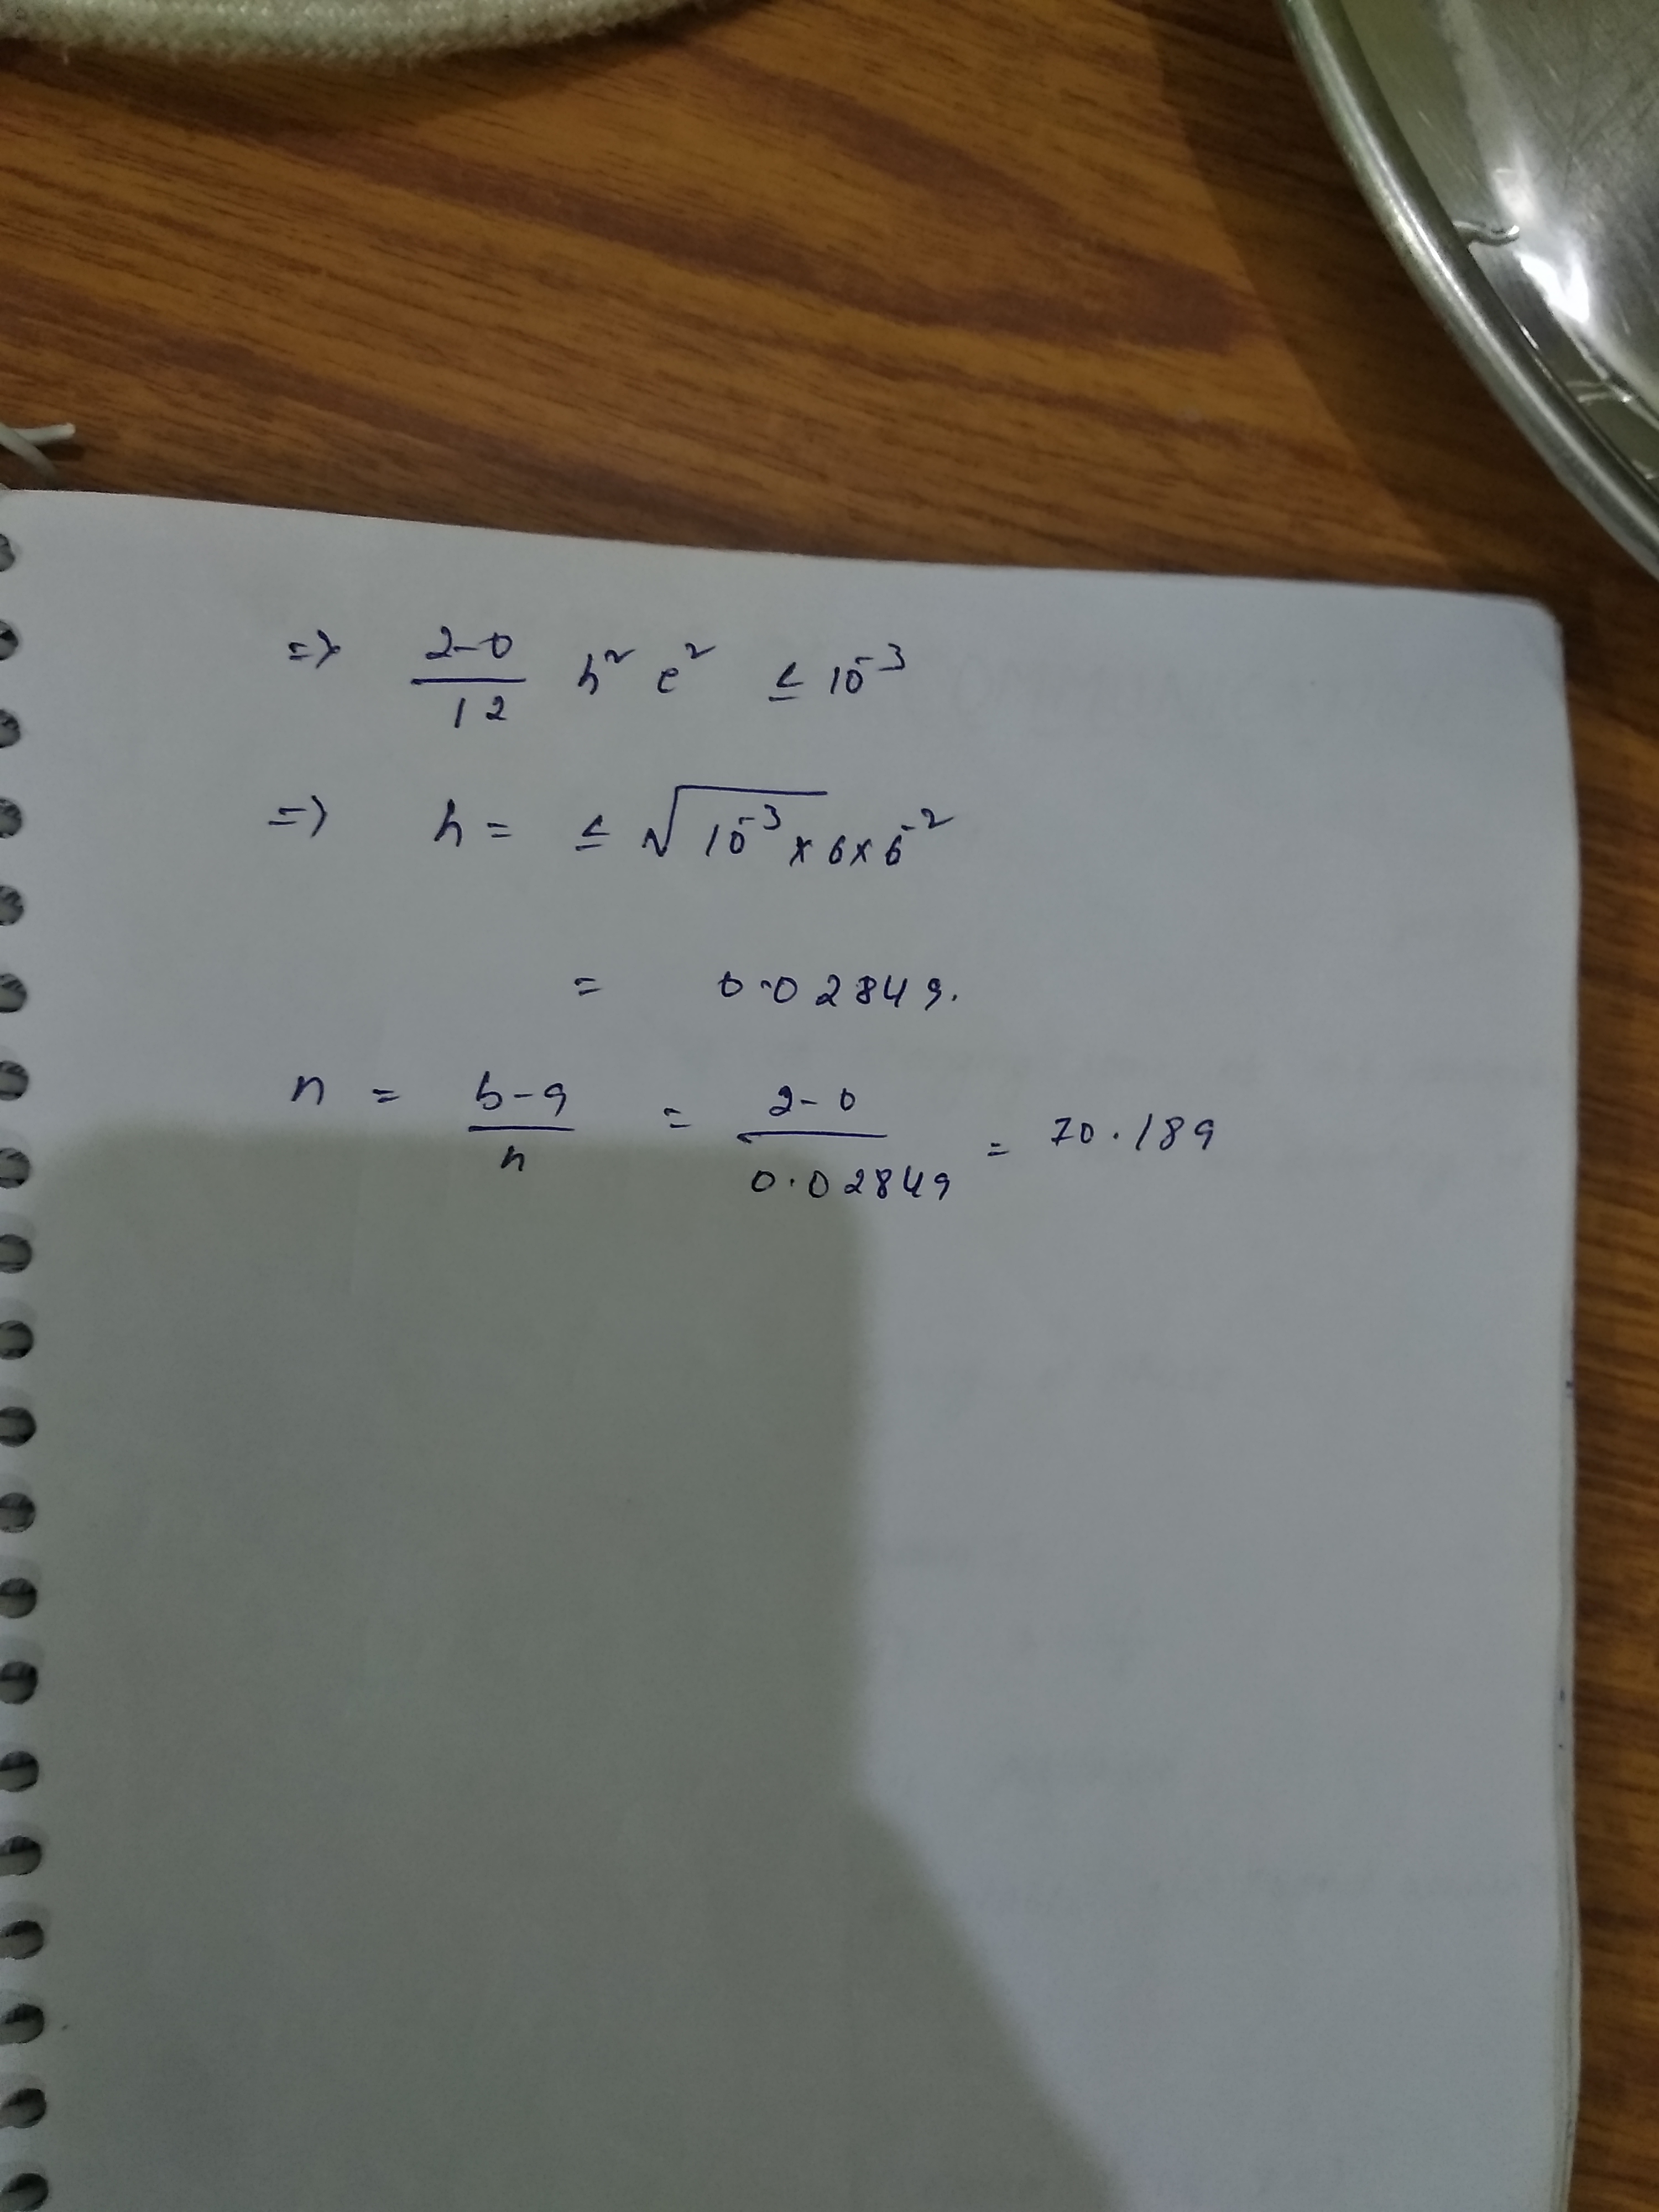 => 2-0/12 h² e² ≤ 10⁻³
=> h = ≤ √10⁻³ × 6 × e⁻²
= 0.02849.
n = b-a/h = 2-0/0.02849 = 70.189